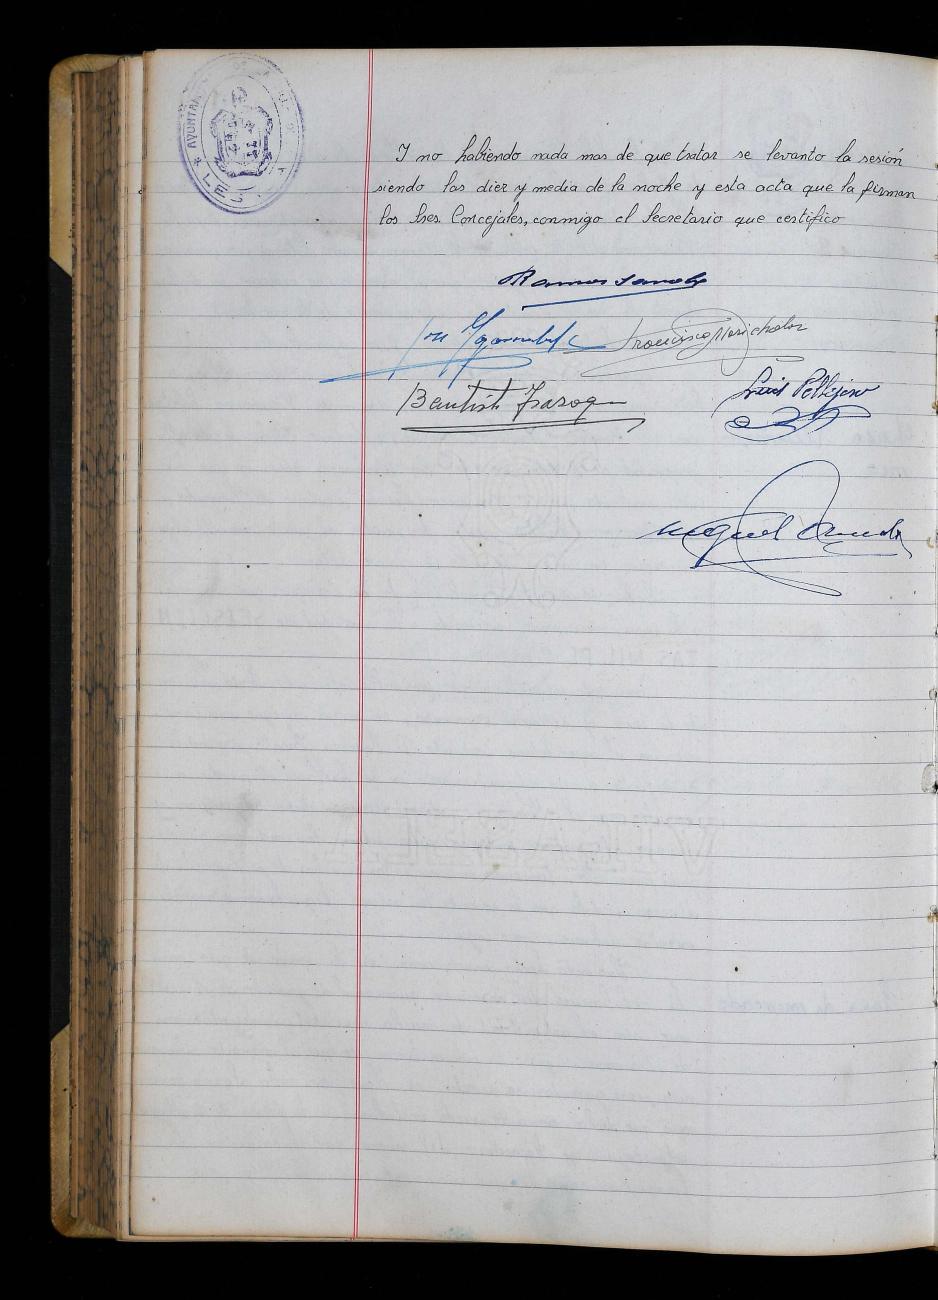 AYUNTA
Y no habiendo nada mas de que tratar se levanto la sesión
siendo las diez y media de la noche y esta acta que la firman
los Sres. Concejales, conmigo el Secretario que certifico
Ramon
Francisco
Bautista
Luis Pellijero
Miguel